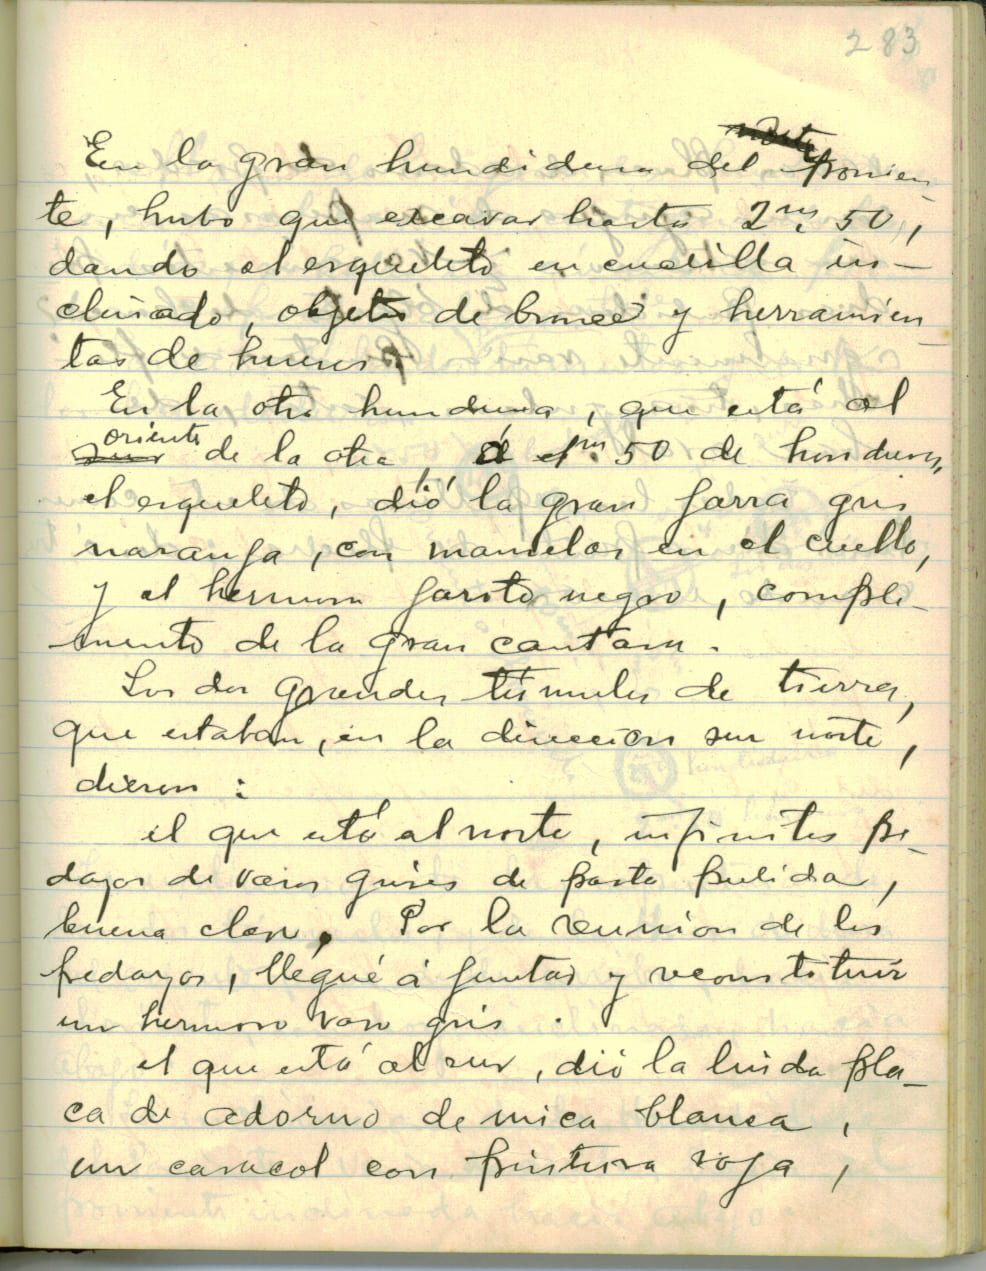 283
En la gran hundidura del ponien-
te, hubo que excavar hasta 2ms. 50,
dando el esqueleto en cuclilla in-
clinado, objetos de bronce y herramien-
tas de hueso.
En la otra hundidura, que está al
oriente de la otra, á 1m. 50 de hondura,
el esqueleto, dió la gran jarra gris
naranja, con mamelas en el cuello,
y el hermoso jarrito negro, comple-
mento de la gran cantara.
Los dos grandes túmulos de tierra,
que estaban, en la dirección sur norte,
dieron :
el que está al norte, infinitos pe-
dazos de vasos grises de pasta pulida,
buena clase. Por la reunion de los
pedazos, llégué á juntar y reconstituir
un hermoso vaso gris.
el que está al sur, dió la linda pla-
ca de adorno de mica blanca,
un caracol con pintura roja,